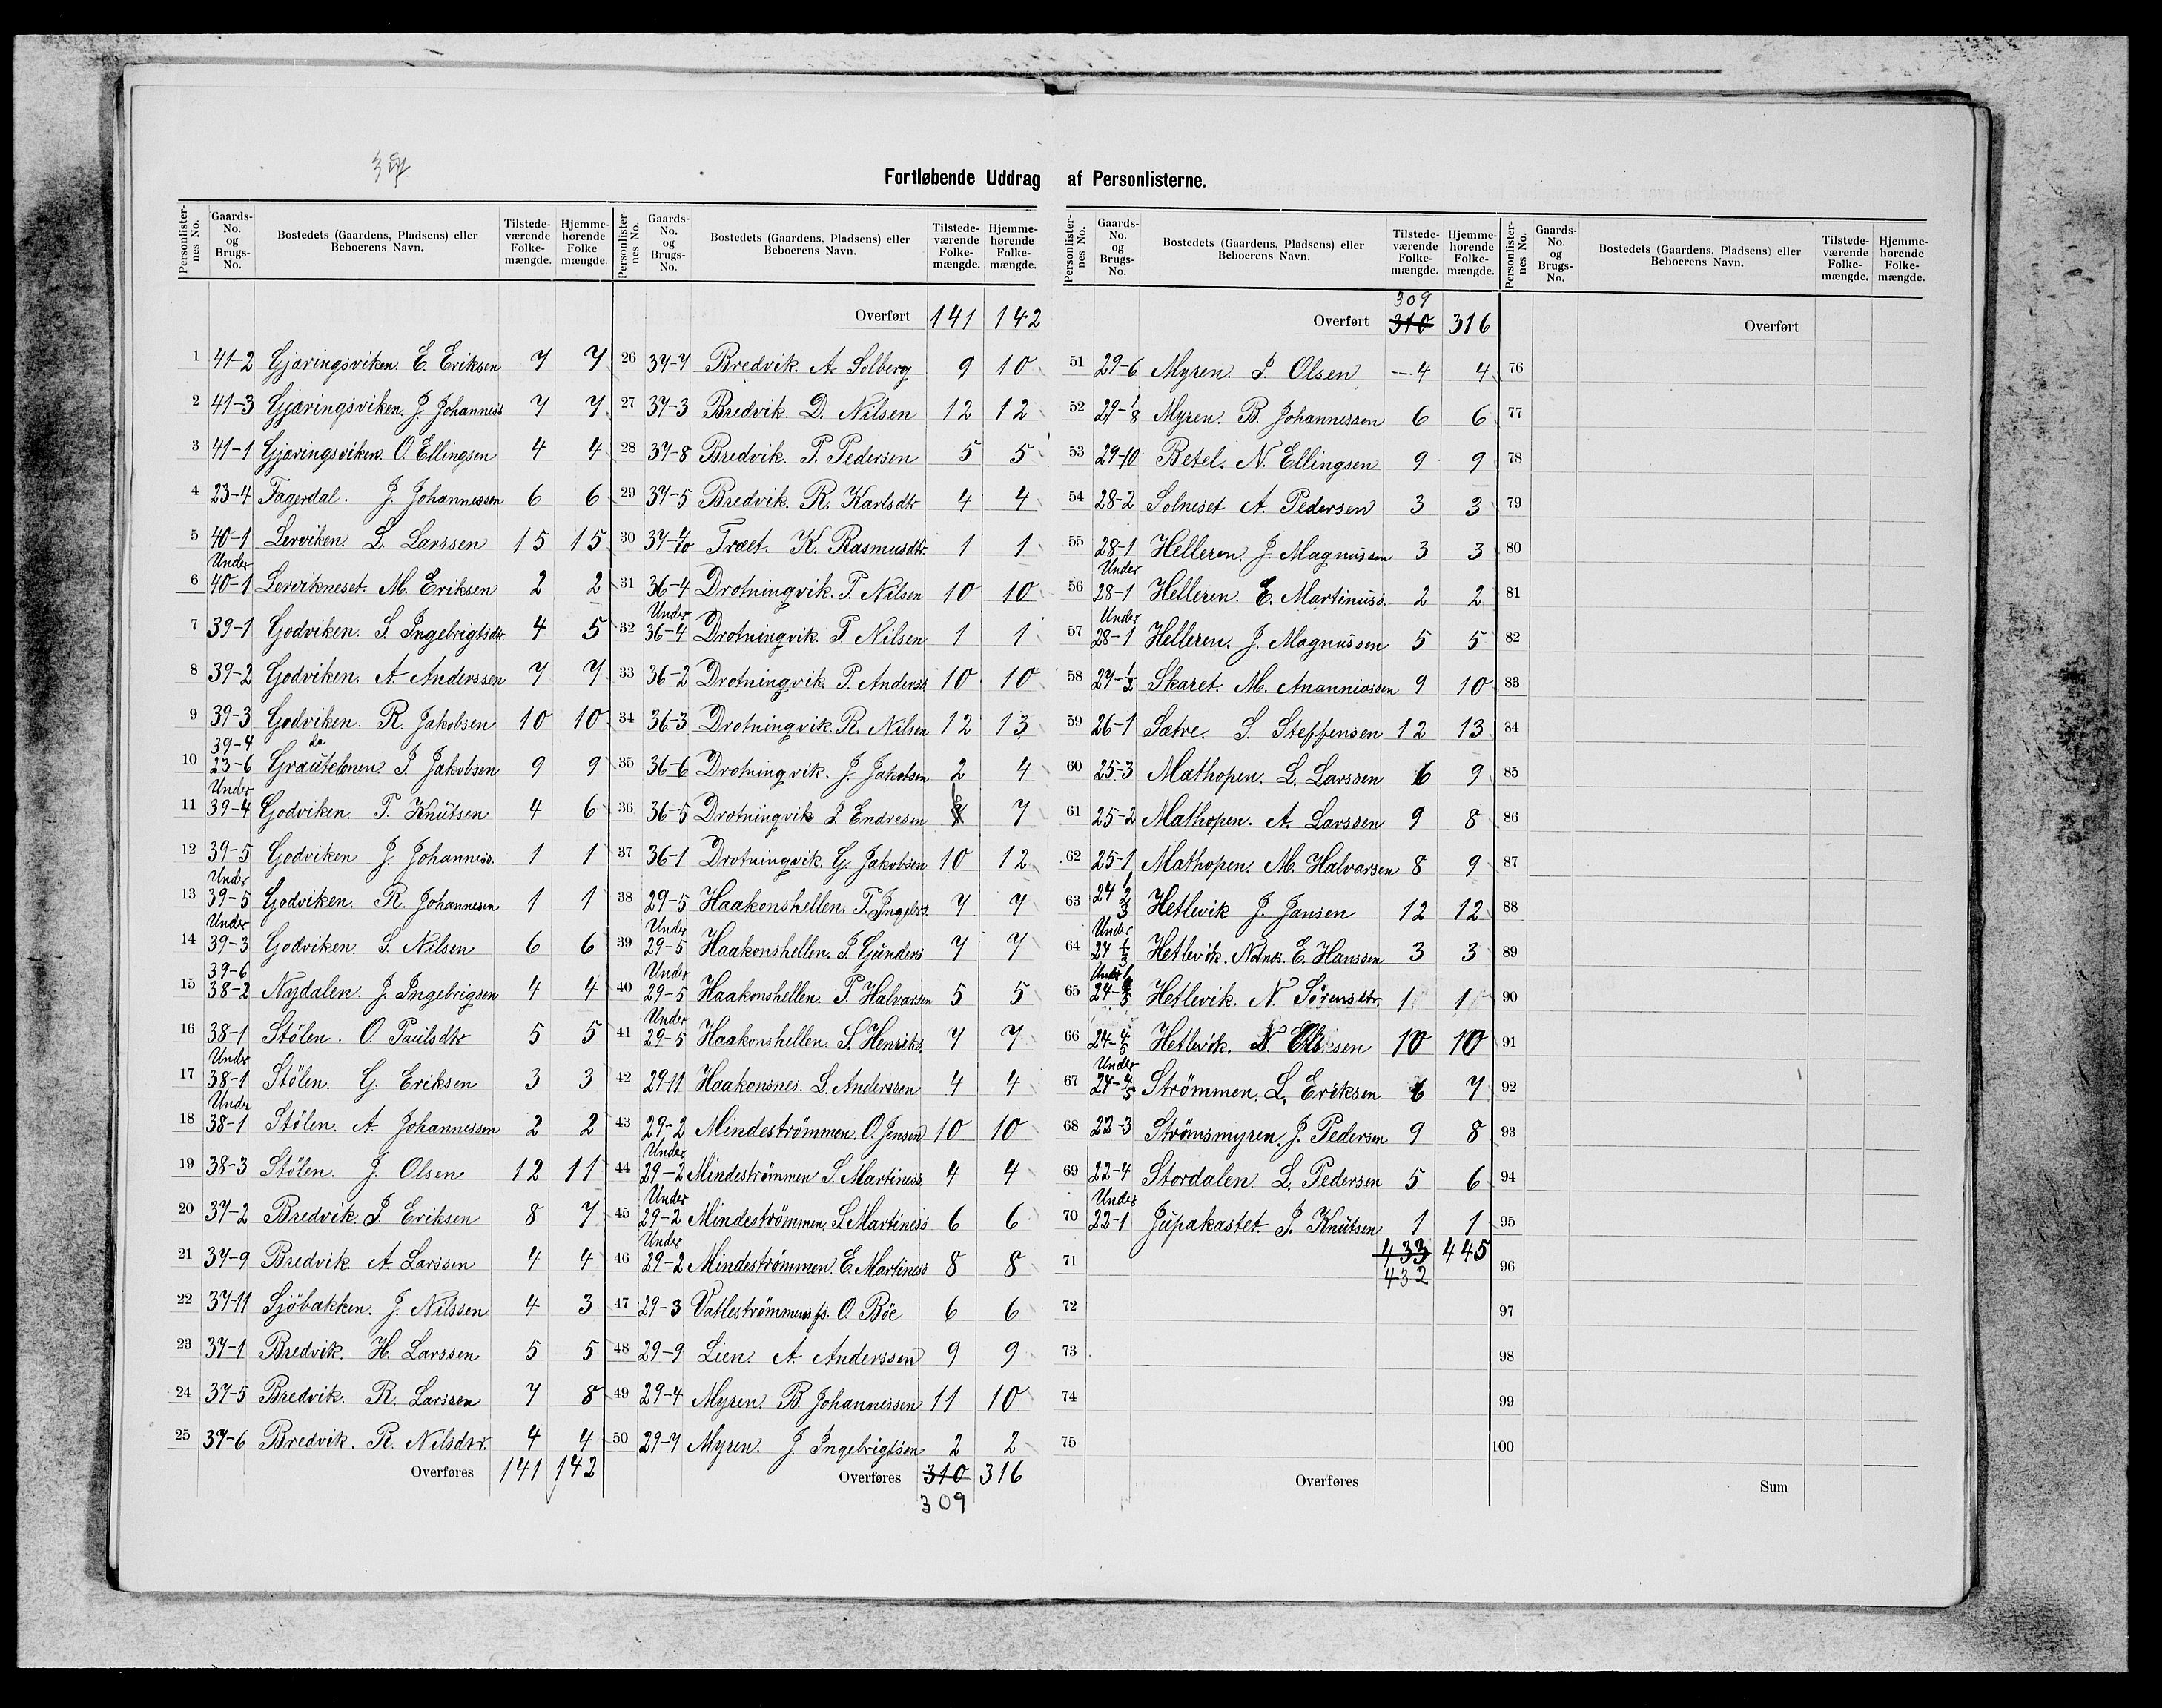 Fortløbende Uddrag af Personlisterne.
Personlisternes No. | Gaards-No. og Brugs-No. | Bostedets (Gaardens, Pladsens) eller Beboerens Navn. | Tilstedeværende Folkemængde. | Hjemmehørende Folkemængde.
1 41-2 Gjæringsviken. E. Eriksen 7 7
2 41-3 Gjæringsviken. J. Johanness 7 7
3 41-1 Gjæringsviken. O. Ellingsen 4 4
4 23-4 Fagerdal. J. Johannessen 6 6
5 40-1 Lerviken. L. Larssen 15 15
6 Under 40-1 Lervikneset. M. Eriksen 2 2
7 39-1 Godviken. S. Ingebrigtsdtr. 4 5
8 39-2 Godviken. A. Anderssen 7 7
9 39-3 Godviken. R. Jakobsen 10 10
10 39-4 23-6 Grautelonen. J. Jakobsen 9 9
11 Under 39-4 Godviken. P. Knütsen 4 6
12 39-5 Godviken J. Johanness. 1 1
13 Under 39-5 Godviken. R. Johannesen 1 1
14 Under 39-3 Godviken. S. Nilsen 6 6
15 39-6 38-2 Nydalen. J. Ingebrigsen 4 4
16 38-1 Stölen. O. Paulsdtr 5 5
17 Under 38-1 Stölen. G. Eriksen 3 3
18 Under 38-1 Stölen. A. Johannessen 2 2
19 38-3 Stölen. J. Olsen 12 11
20 37-2 Bredvik. J. Eriksen 8 7
21 37-9 Bredvik A. Larssen 4 4
22 37-11 Sjöbakken. J. Nilssen 4 3
23 37-1 Bredvik. H. Larssen 5 5
24 37-5 Bredvik. R. Larssen 7 8
25 37-6 Bredvik. R. Nilsdtr. 4 4
Overføres 141 142
Overført 141 142
26 37-7 Bredvik. A. Solberg 9 10
27 37-3 Bredvik. D. Nilsen 12 12
28 37-8 Bredvik. P. Pedersen 5 5
29 37-5 Bredvik. R. Karlsdtr 4 4
30 37-4/10 Træet. K. Rasmusdtr. 1 1
31 36-4 Drotningvik. P. Nilsen 10 10
32 Under 36-4 Drotningvik. P. Nilsen 1 1
33 36-2 Drotningvik. P. Anders 10 10
34 36-3 Drotningvik. R. Nilsen 12 13
35 36-6 Drotningvik. J. Jakobsen 2 4
36 36-5 Drotningvik J. Endresen 6 7
37 36-1 Drotningvik. G. Jakobsen 10 12
38 29-5 Haakonshellen. P. Ingebr. 7 7
39 Under 29-5 Haakonshellen. J. Gunders 7 7
40 Under 29-5 Haakonshellen. P. Halvarsen 5 5
41 Under 29-5 Haakonshellen. S. Henriks. 7 7
42 29-11 Haakonsnes. L. Anderssen 4 4
43 29-2 Mindeströmmen. O. Jensen 10 10
44 Under 29-2 Mindeströmmen S. Martiness. 4 4
45 Under 29-2 Mindeströmmen. S. Martiness 6 6
46 Under 29-2 Mindeströmmen E. Martiness 8 8
47 29-3 Vatleströmmens fs. O. Böe 6 6
48 29-9 Lien. A. Anderssen 9 9
49 29-4 Myren. B. Johannessen 11 10
50 29-7 Myren. J. Ingebrigtsen 2 2
Overføres 310 316
309
309
Overført 310 316
51 29-6 Myren. J. Olsen 4 4
52 29-1/8 Myren. B. Johannessen 6 6
53 29-10 Betel. N. Ellingsen 9 9
54 28-2 Solneset A. Pedersen 3 3
55 28-1 Helleren. J. Magnussen 3 3
56 Under 28-1 Helleren. E. Martinuss. 2 2
57 Under 28-1 Helleren. J. Magnussen 5 5
58 27-1/2 Skaret. M. Ananniassen 9 10
59 26-1 Sætre. S. Steffensen 12 13
60 25-3 Mathopen. L. Larssen 6 9
61 25-2 Mathopen. A. Larssen 9 8
62 25-1 Mathopen. M. Halvarsen 8 9
63 24 1 2 3 Hetlevik J. Jansen 12 12
64 Under 24 1/3 Hetlevik. E. Hanssen 3 3
65 Under Hetlevik. N. Sörensdtr. 1 1
66 24-4/5 Hetlevik. 10 10
67 Under 24-4/5 Strömmen. L. Eriksen 6 7
68 22-3 Strömsmyren. J. Pedersen 9 8
69 22-4 Stordalen. L. Pedersen 5 6
70 Under 22-1 Jupakastet. J. Knütsen 1 1
71 433 445
432
72
73
74
75
Overføres
Overført
76
77
78
79
80
81
82
83
84
85
86
87
88
89
90
91
92
93
94
95
96
97
98
99
100
Sum